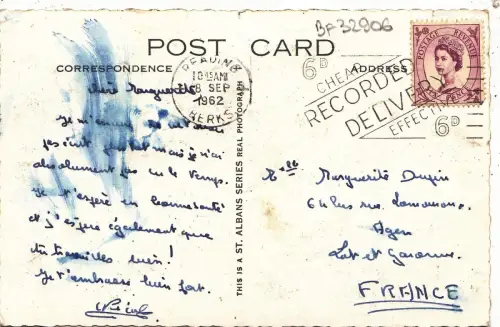 BF 32906
POST CARD
CORRESPONDENCE
ADDRESS
READING
10 15 AM
8 SEP
1962
BERKS
6D
CHEAP
RECORDED
DELIVE
EFFECTI
6D
POSTAGE REVENUE
Chère Marguerite
Je
mais je n'ai
absolument pas eu le temps.
Je t'espère en bonne santé
et j'espère également que
tu travailles bien !
Je t'embrasse bien fort.
THIS IS A ST. ALBANS SERIES REAL PHOTOGRAPH
Marguerite Dupin
64 bis rue Lamouroux.
Agen
Lot et Garonne.
FRANCE